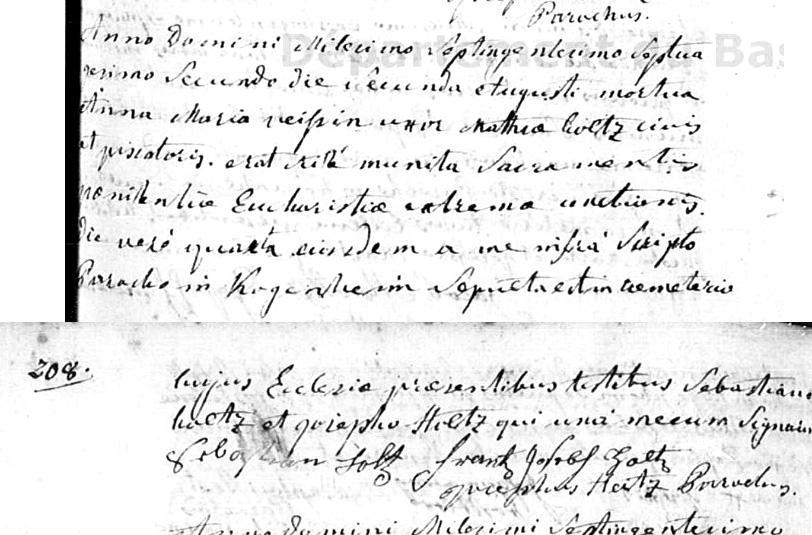 Parochus.
Anno Domini Milesimo Septingentesimo Septua
gesimo Secundo die secunda Augusti mortua
Anna Maria uxor Mathiæ holtz civis
et piscatoris. erat ritè munita Sacramentis
pœnitentiæ Eucharistiæ extremæ unctionis.
die verò quarta eiusdem a me infrà Scripto
Parocho in Kogenheim Sepulta est in cemeterio
208.
hujus Eclesiæ præsentibus testibus Sebastiano
holtz et josepho Holtz qui unà mecum Signarunt
Sebastian Holtz Frantz Josef Holtz
josephus Hertz Parochus.
Anno Domini Milesimi Septingentesimo